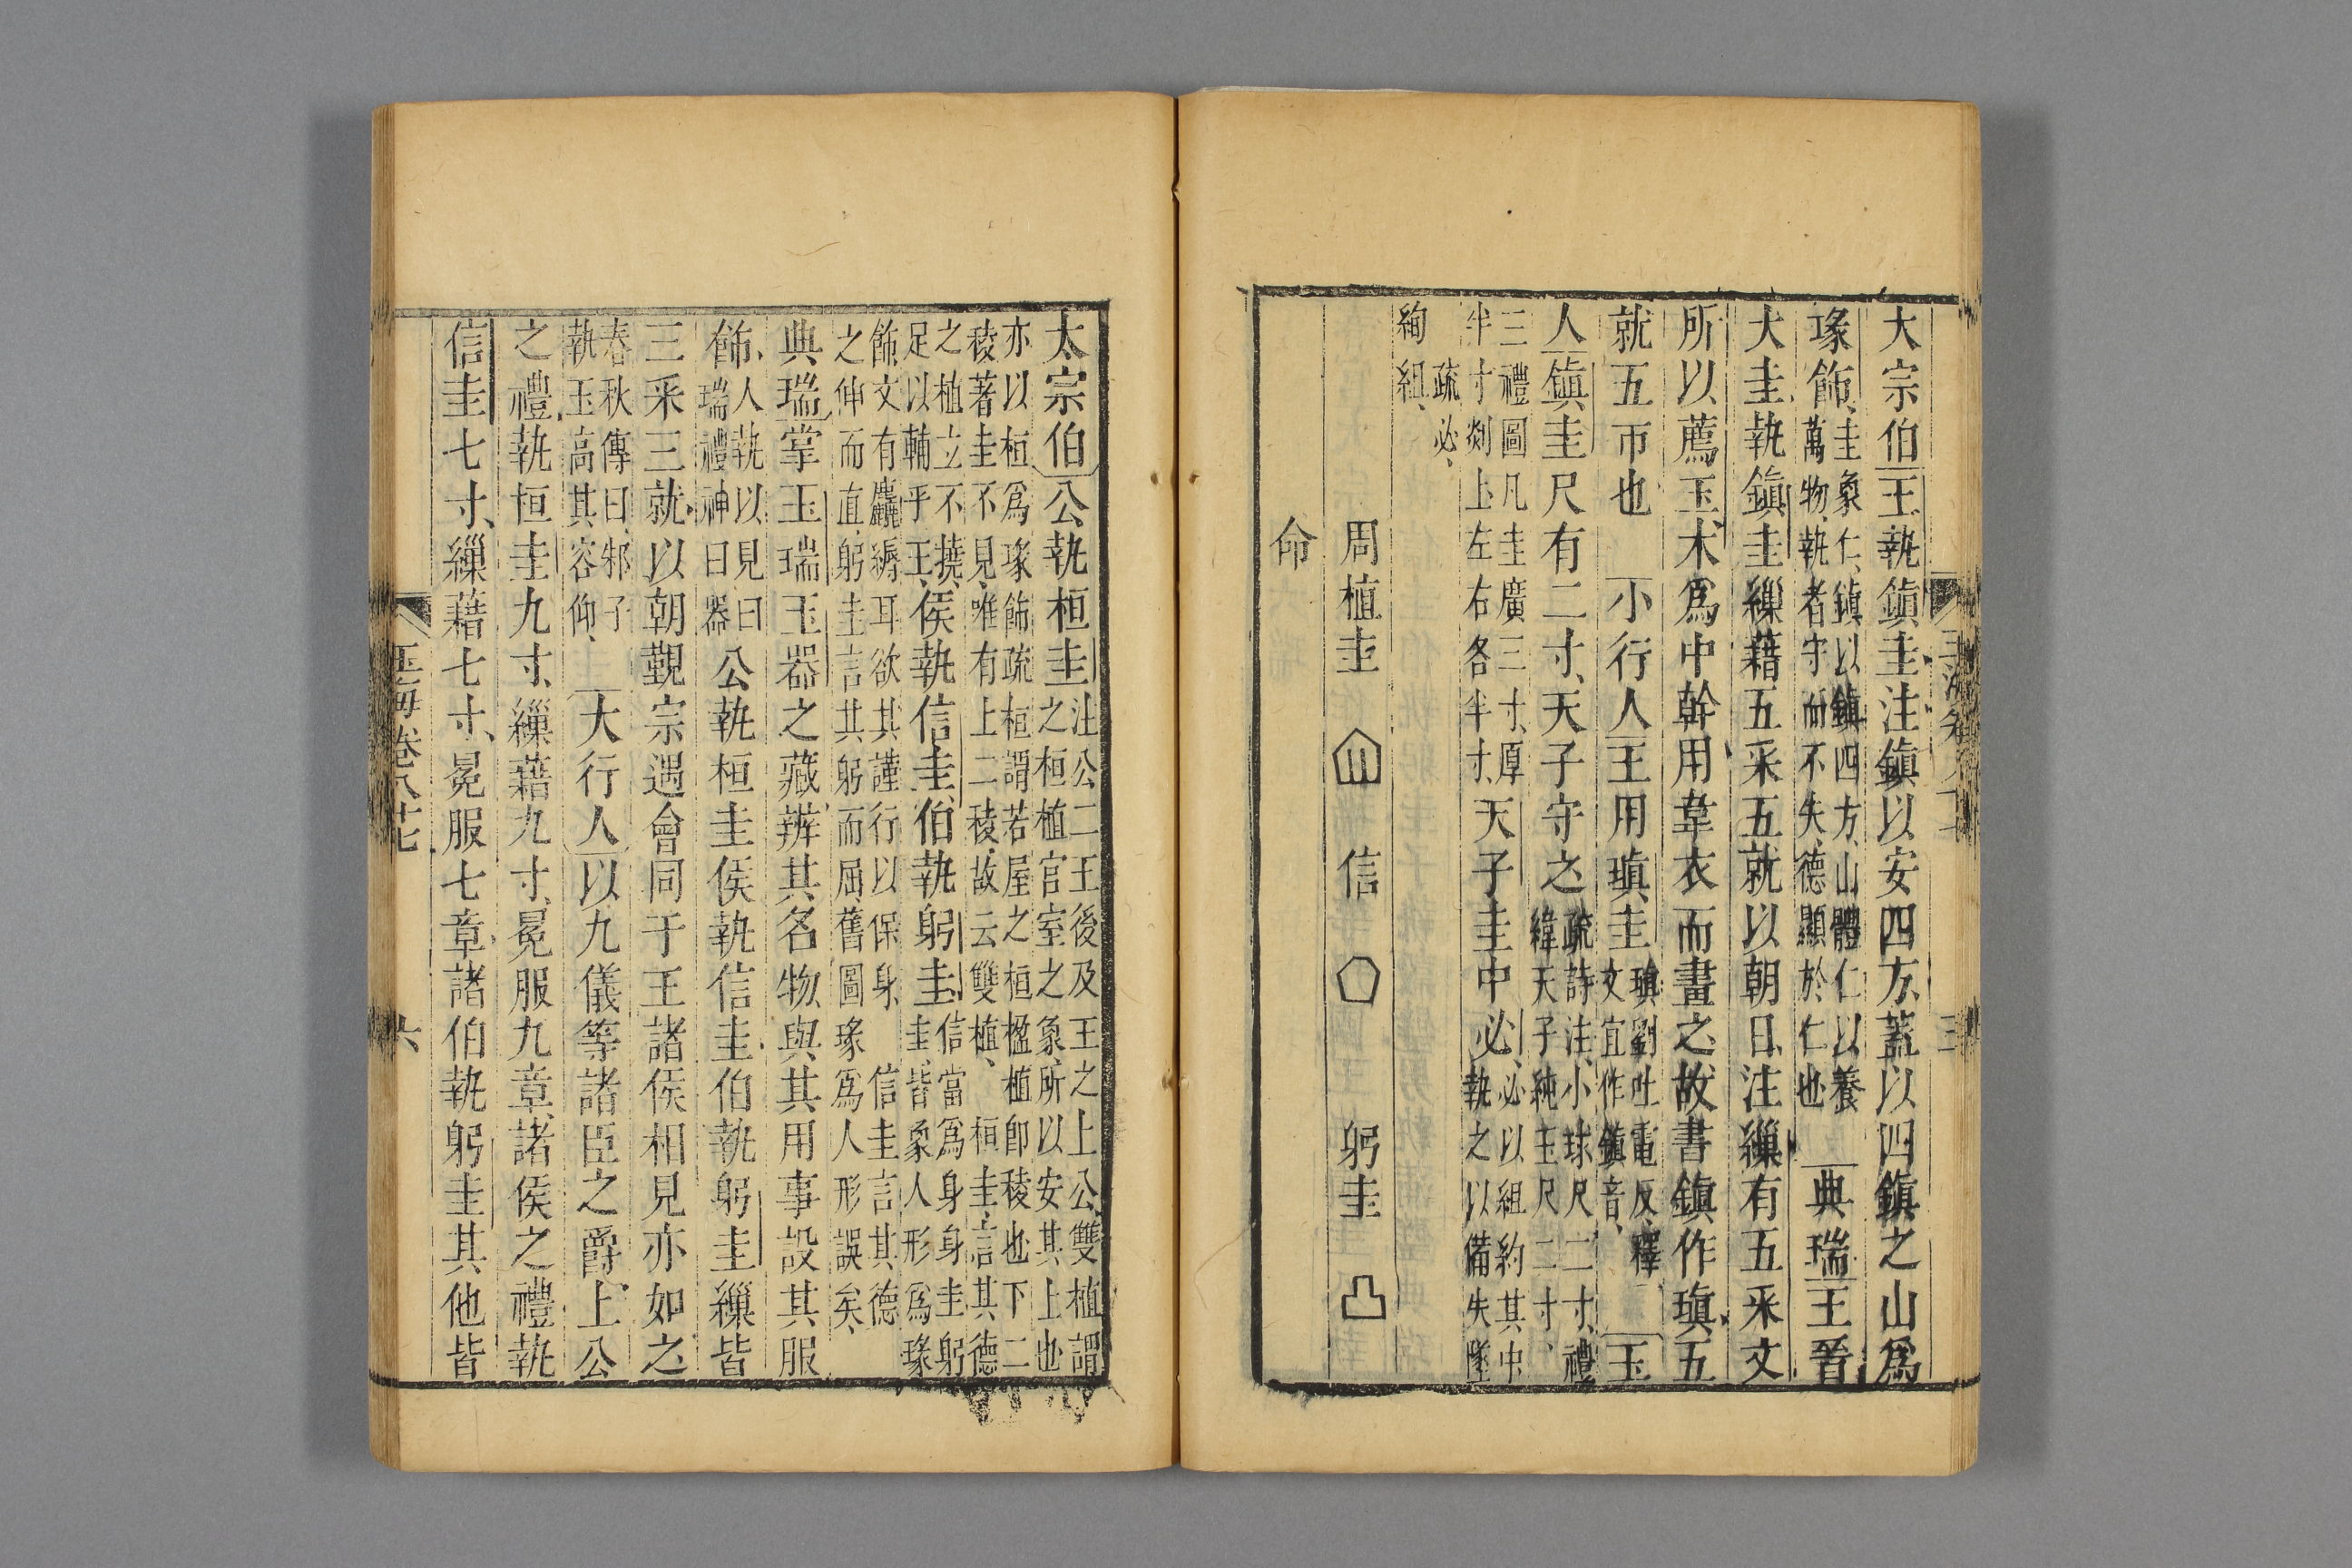 大宗伯王執鎮圭注鎮以安四方蓋以四鎮之山爲
瑑飾圭象仁鎮以鎮四方山體仁以養
萬物執者守而不失德顯於仁也典瑞王晉
大圭執鎮圭繅藉五采五就以朝日注繅有五采文
所以薦玉木爲中幹用韋衣而畫之故書鎮作瑱五
就五帀也小行人王用瑱圭瑱劉吐電反釋
文宜作鎮音玉
人鎮圭尺有二寸天子守之疏詩注小球尺二寸禮
緯天子純玉尺二寸
三禮圖凡圭廣三寸厚
半寸剡上左右各半寸天子圭中必必以組約其中
執之以備失墜
疏必
絢組
周植圭 信 躬圭
命
太宗伯公執桓圭注公二王後及王之上公雙植謂
之桓植官室之象所以安其上也
亦以桓爲瑑飾疏桓謂若屋之桓楹植即稜也下二
稜著圭不見唯有上二稜故云雙植桓圭言其德
之植立不撓
足以輔乎王侯執信圭伯執躬圭信當爲身身圭躬
圭皆象人形爲瑑
飾文有麤縟耳欲其謹行以保身信圭言其德
之伸而直躬圭言其躬而屈舊圖瑑爲人形誤矣
典瑞掌玉瑞玉器之藏辨其名物與其用事設其服
飾人執以見曰
瑞禮神曰器公執桓圭侯執信圭伯執躬圭繅皆
三采三就以朝覲宗遇會同于王諸侯相見亦如之
春秋傳曰邾子
執玉高其容仰大行人以九儀等諸臣之爵上公
之禮執桓圭九寸繅藉九寸冕服九章諸侯之禮執
信圭七寸繅藉七寸冕服七章諸伯執躬圭其他皆
玉海卷八十七
六